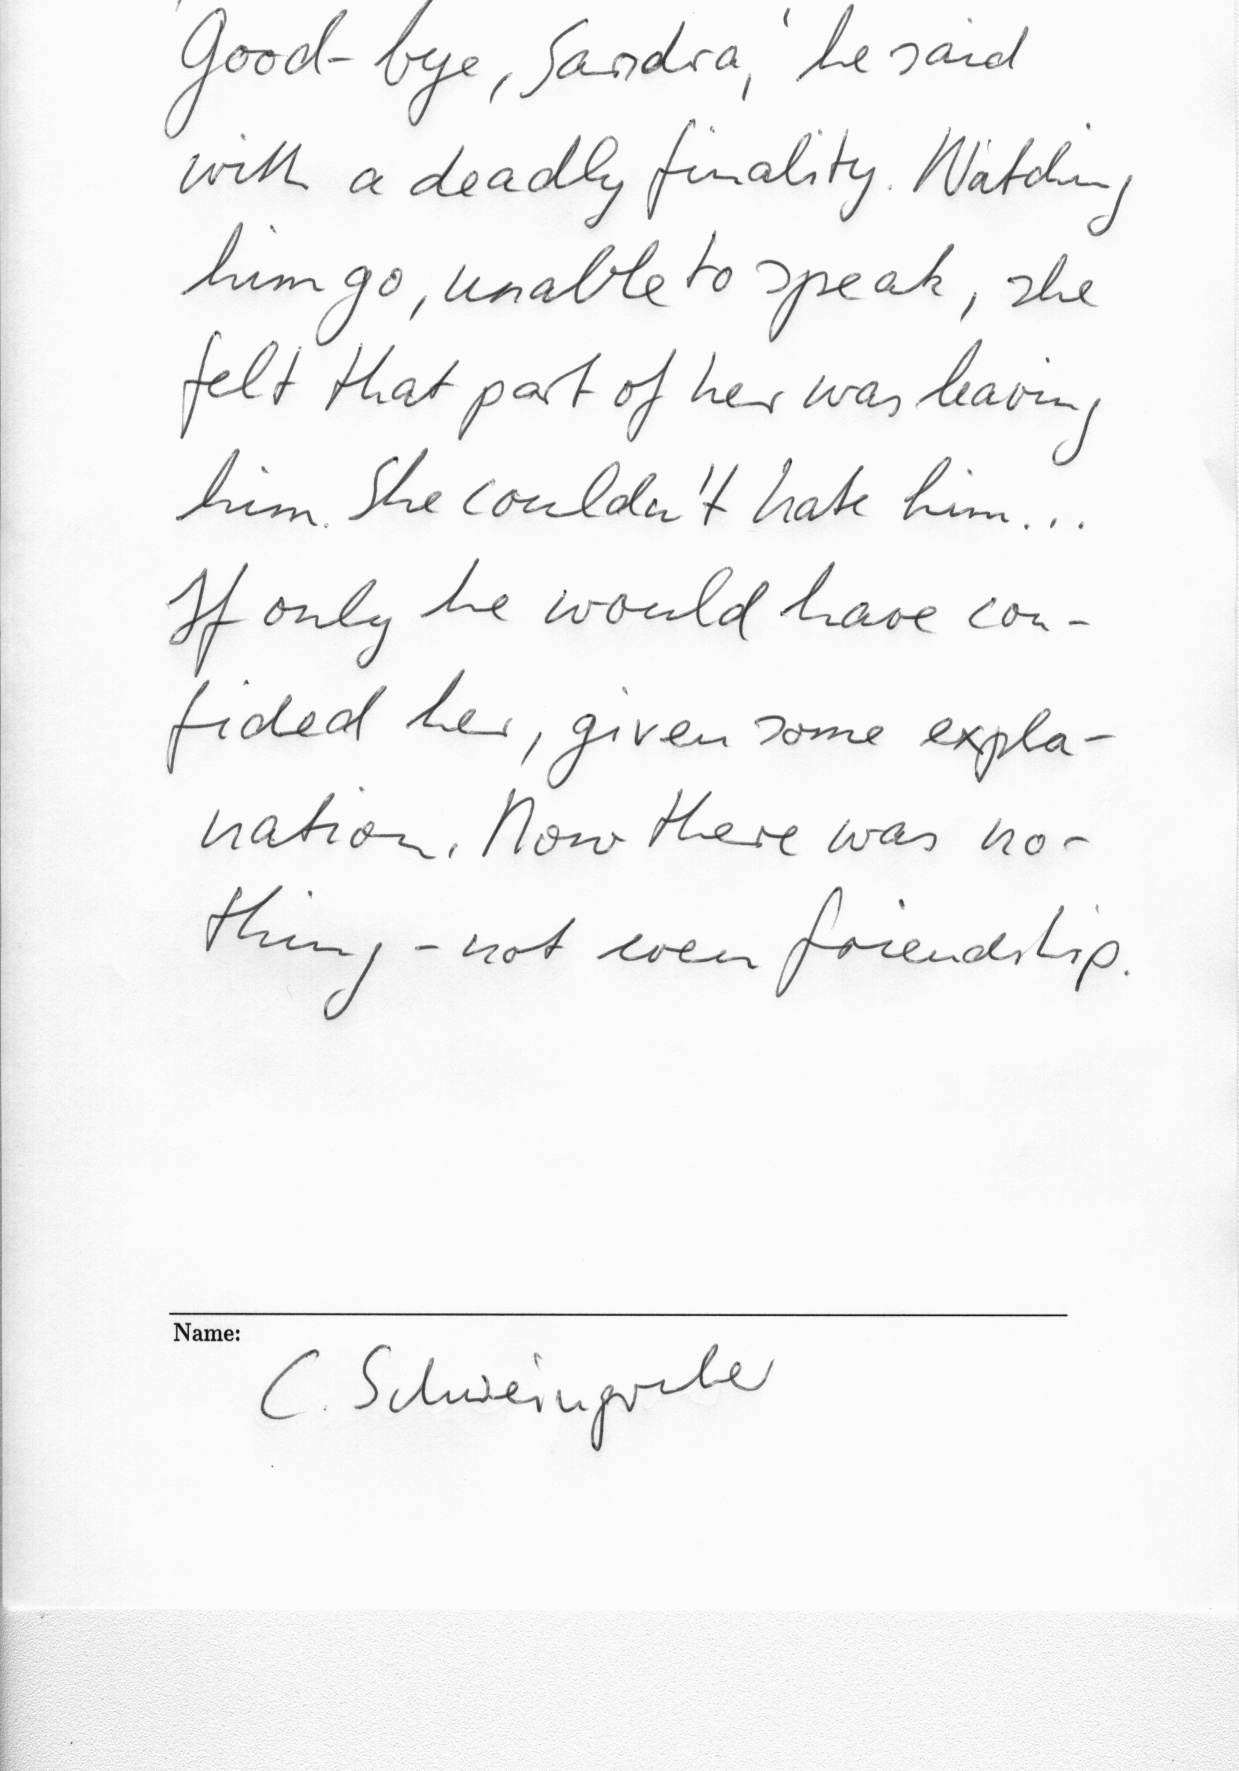 'Good-bye, Sandra,' he said
with a deadly finality. Watching
him go, unable to speak, she
felt that part of her was leaving
him. She couldn't hate him...
If only he would have con-
fided her, given some expla-
nation. Now there was no-
thing - not even friendship.
Name:
C. Schweingruber